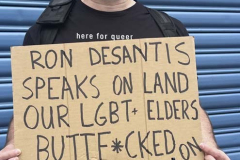 here for queer
RON DESANTIS
SPEAKS ON LAND
OUR LGBT+ ELDERS
BUTTF*CKED
ON